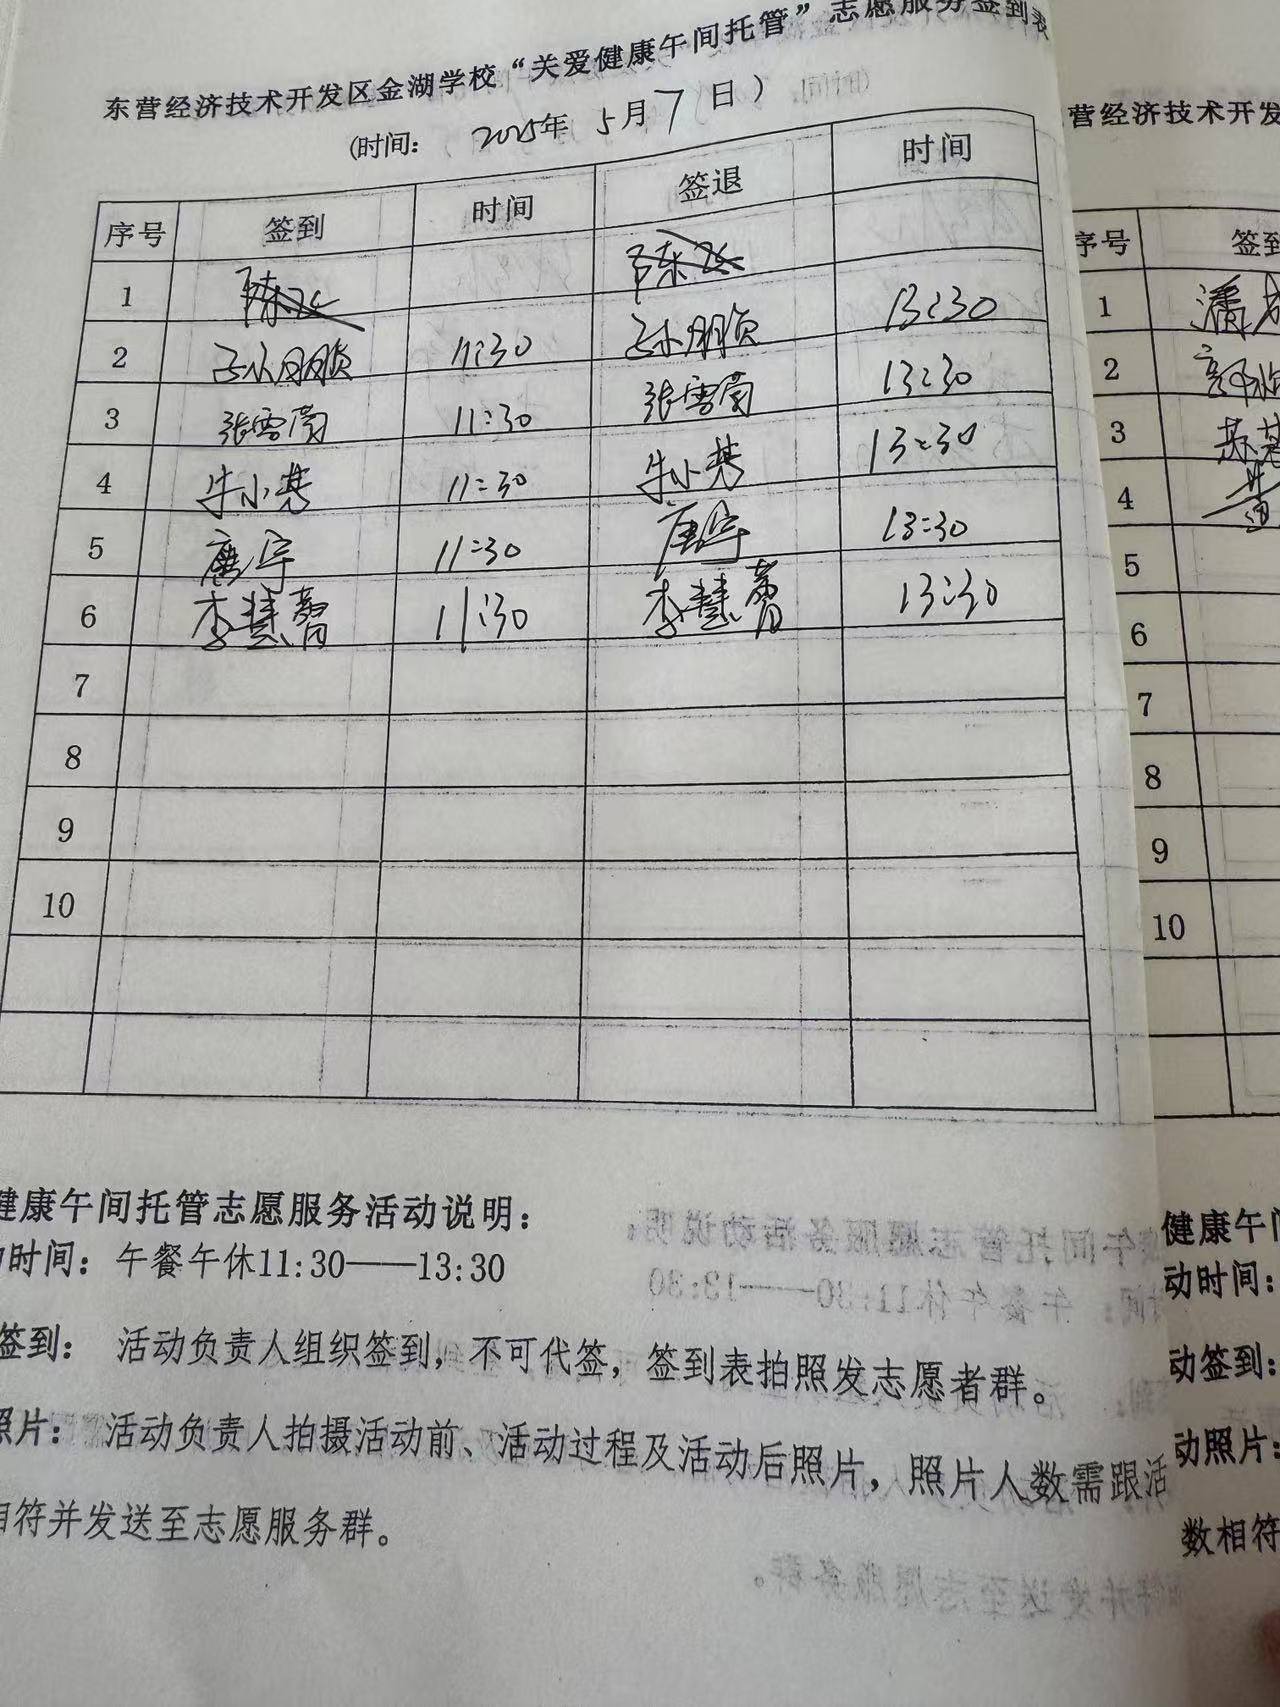 东营经济技术开发区金湖学校“关爱健康午间托管”志愿服务签到表
(时间： 2025年 5月7日)
序号 签到 时间 签退 时间
1
2 孙朋顺 11:30 孙朋顺 13:30
3 张雪菊 11:30 张雪菊 13:30
4 牛小慧 11:30 牛小慧 13:30
5 唐宇 11:30 唐宇 13:30
6 李慧 11:30 李慧 13:30
7
8
9
10
健康午间托管志愿服务活动说明：
时间：午餐午休11:30——13:30
签到： 活动负责人组织签到，不可代签，签到表拍照发志愿者群。
照片： 活动负责人拍摄活动前、活动过程及活动后照片，照片人数需跟活
相符并发送至志愿服务群。
营经济技术开发
序号 签到
1 潘
2
3
4
5
6
7
8
9
10
健康午间
动时间：
动签到：
动照片：
数相符